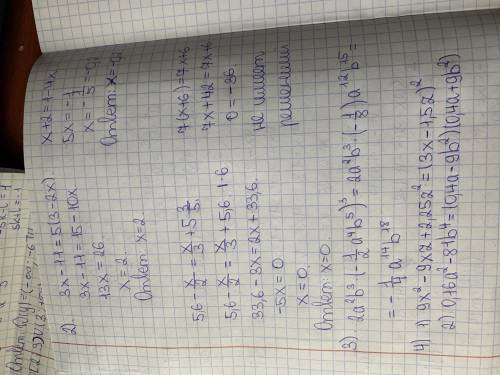 2. 3x-11=5(3-2x)
3x-11=15-10x
13x=26
x=2
Ответ: x=2
x+2=1-4x
5x=-1
5,6-x/2=x/3+5 3/5
5,6-x/2=x/3+5,6 |·6
33,6-3x=2x+33,6.
-5x=0
x=0.
Ответ: x=0.
7(x+6)=7x+6
7x+42=7x+6
0=-36
не имеет
решений
3) 2a²b³·(-1/2a⁴b⁵)³=2a²b³·(-1/8)a¹²b¹⁵=
=-1/4a¹⁴b¹⁸
4) 1) 9x²-9xz+2,25z²=(3x-1,5z)²
2) 0,16a²-81b⁴=(0,4a-9b²)(0,4a+9b²)